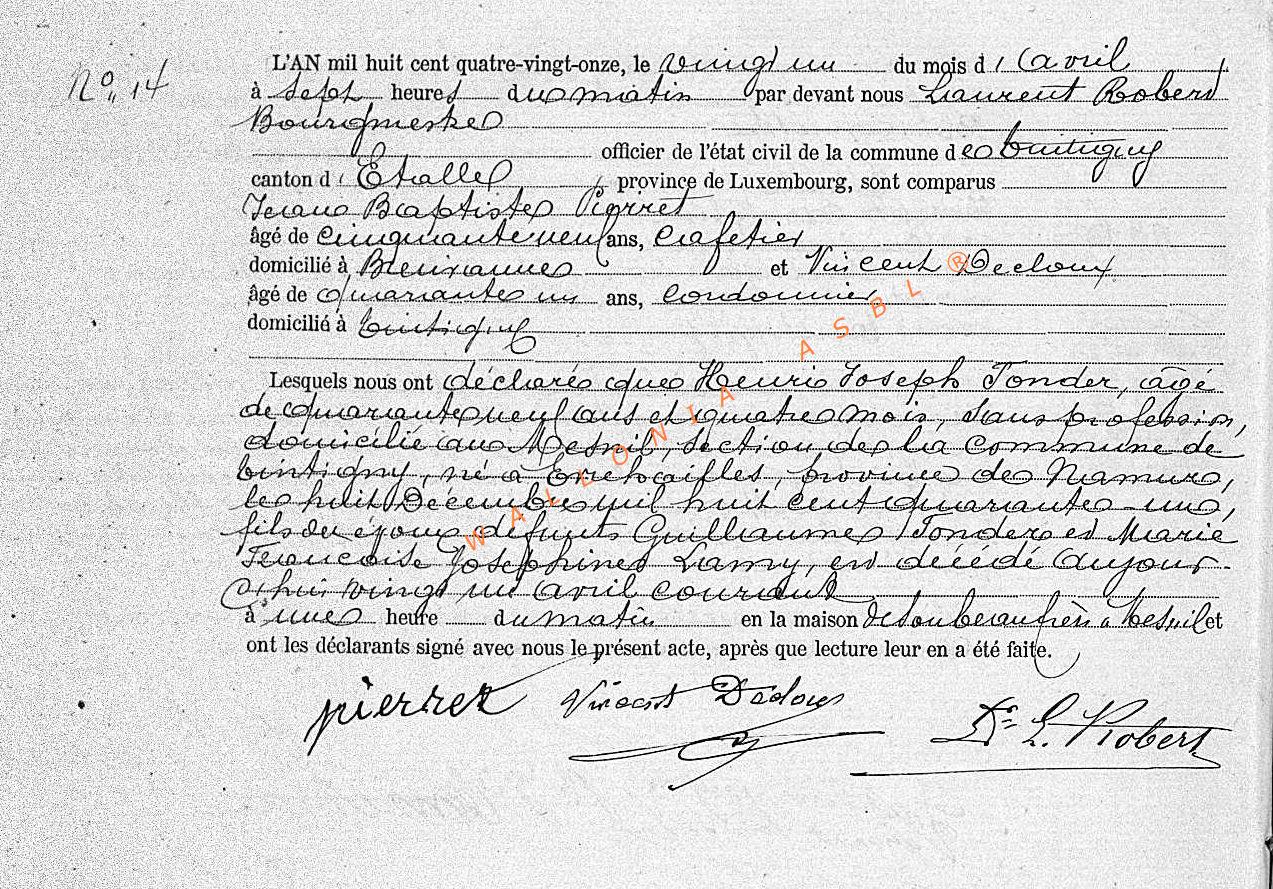 N° 14
L'AN mil huit cent quatre-vingt-onze, le vingt un du mois d'avril
à sept heures du matin par devant nous Laurent Robert
Bourgmestre
officier de l'état civil de la commune de Tintigny
canton d'Etalle province de Luxembourg, sont comparus
Jean Baptiste Pierret
âgé de cinquante neuf ans, cafetier
domicilié à et Vincent Decloux
âgé de quarante un ans, cordonnier
domicilié à Tintigny
Lesquels nous ont déclaré que Henri Joseph Tonder, âgé
de quarante neuf ans et quatre mois, sans profession,
domicilié au Mesnil, section de la commune de
Tintigny, né à province de Namur,
le huit Decembre mil huit cent quarante un,
fils des époux défunts Guillaume Tonder et Marie
Françoise Josephine Lamy, est décédé aujour-
d'hui vingt un avril courant
à une heure du matin en la maison de son beau frère à Mesnil et
ont les déclarants signé avec nous le présent acte, après que lecture leur en a été faite.
pierret Vincent Decloux Dr L. Robert
WALLONIA ASBL ®